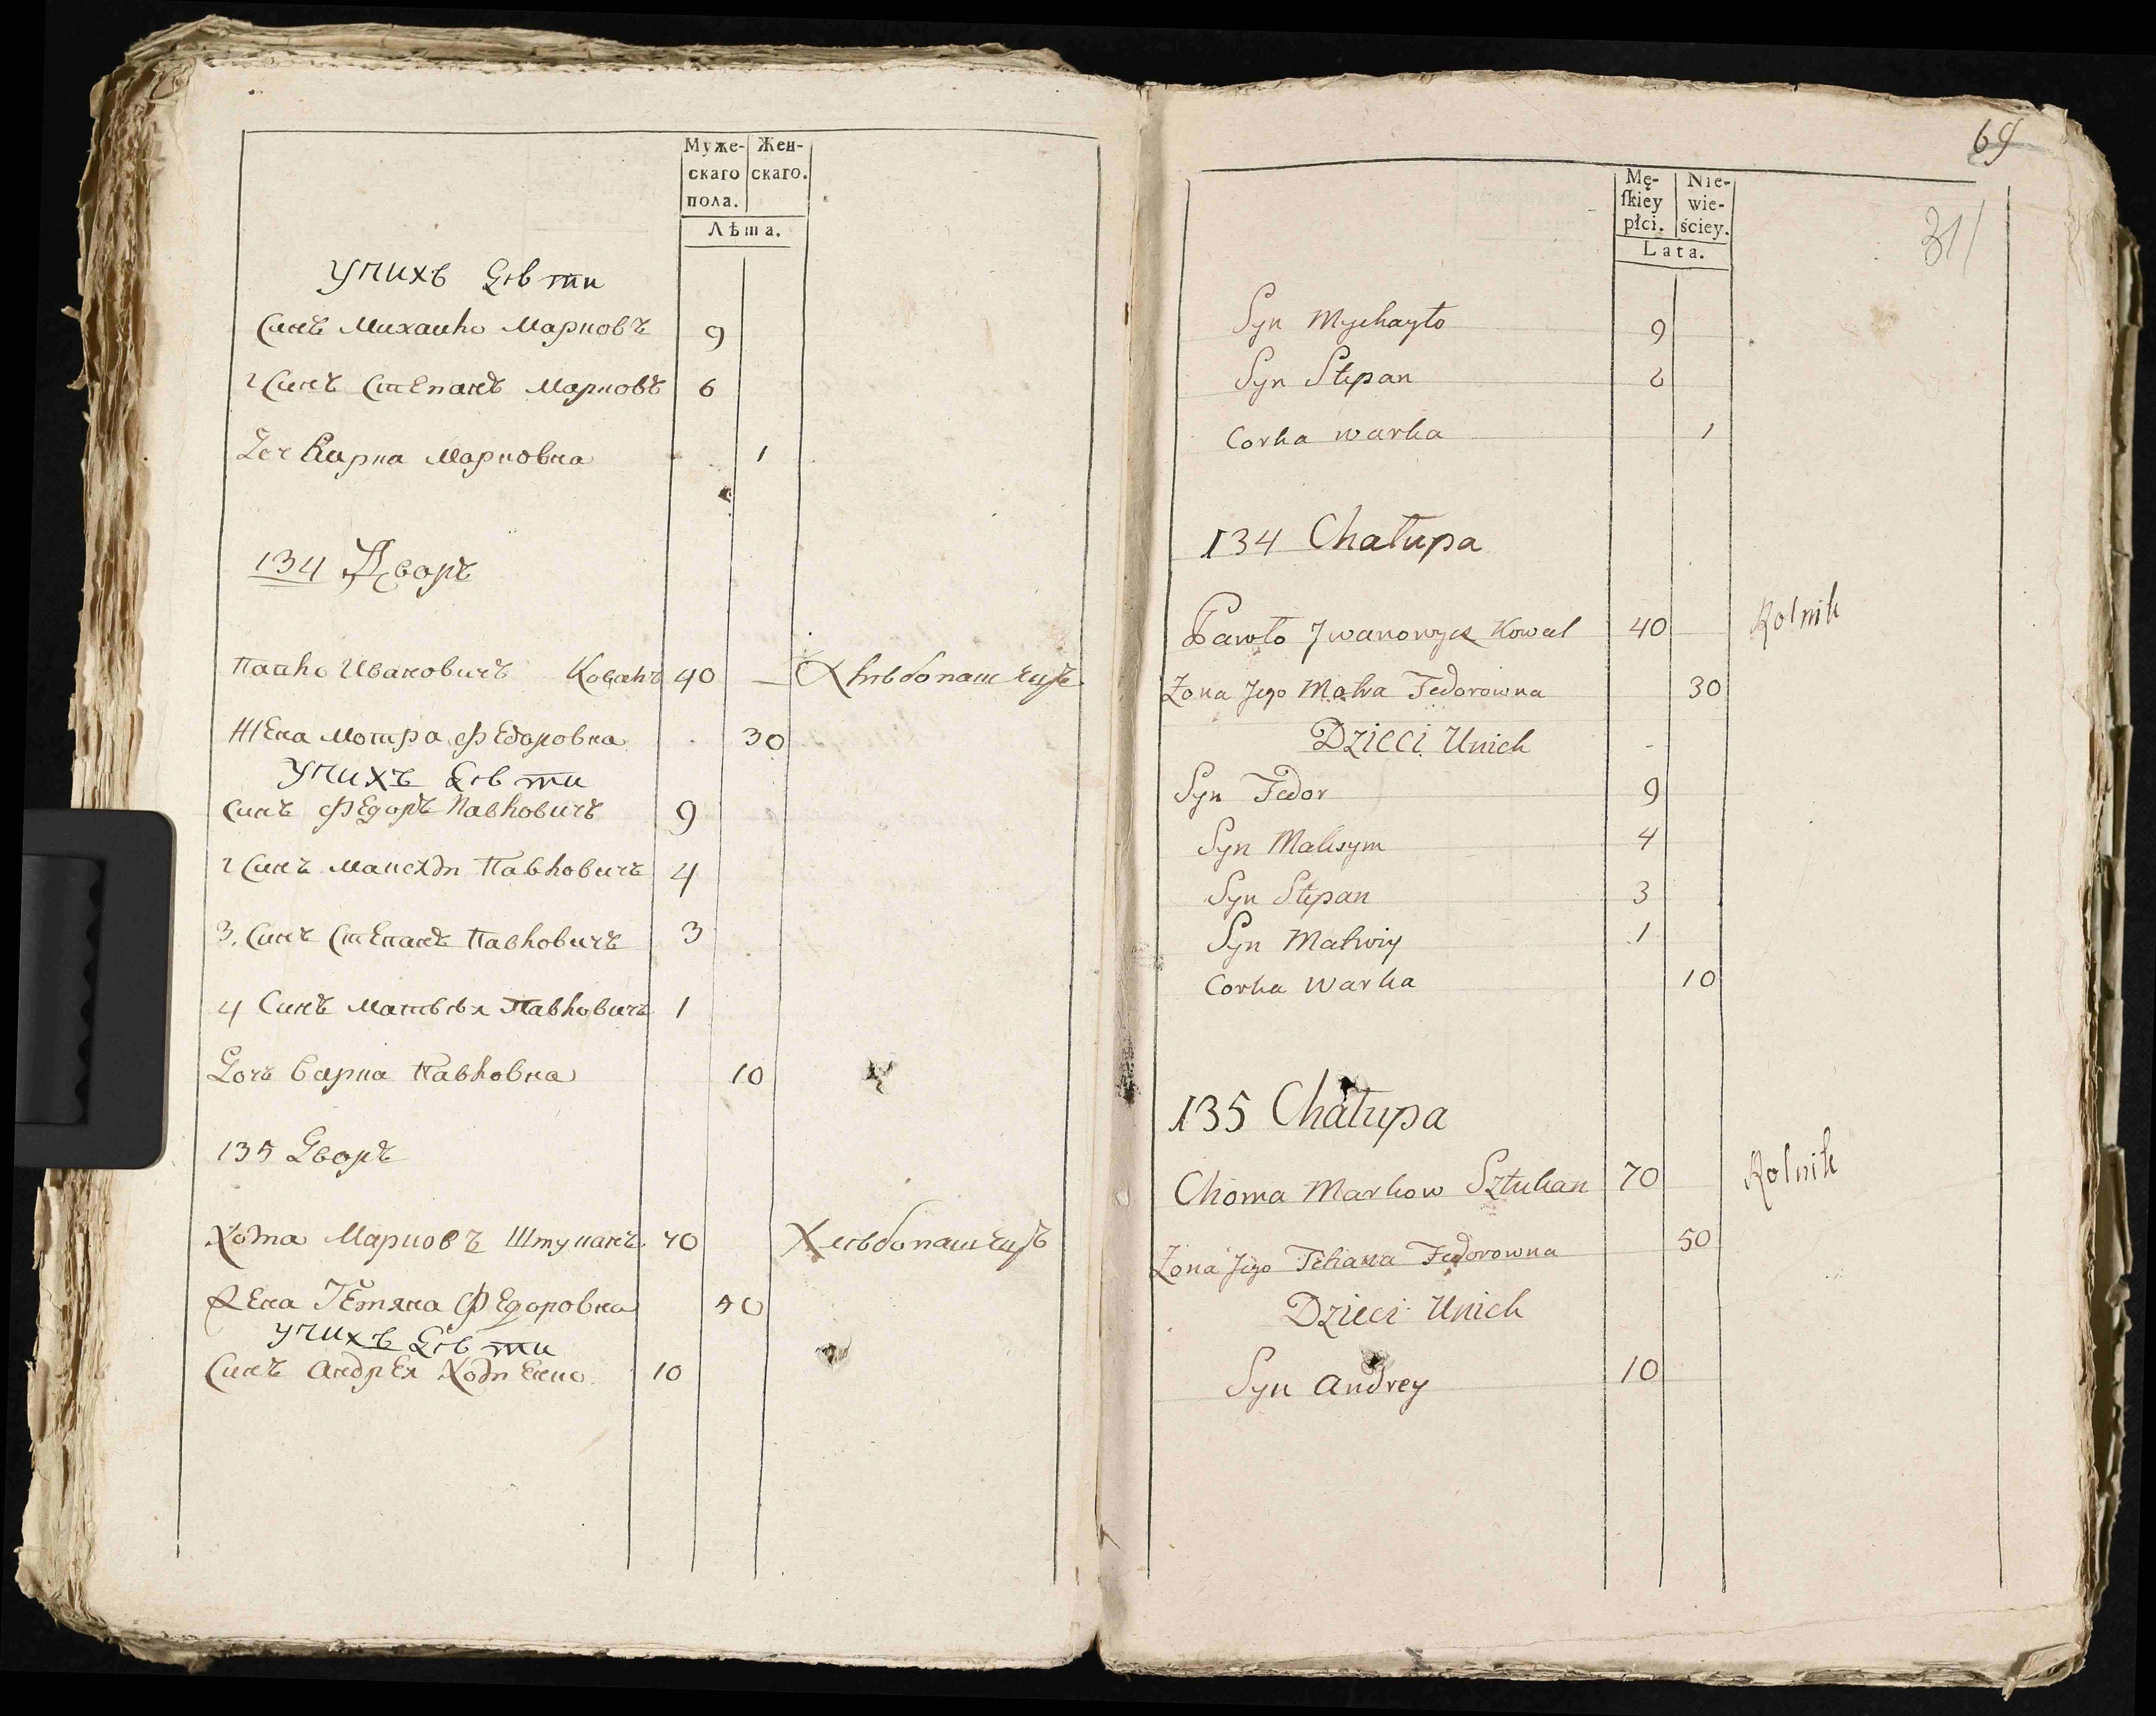 Муже-
скаго
пола.
Жен-
скаго.
Лѣта.
У нихъ Дѣти
Синъ Михайло Марковъ 9
2 Синъ Степанъ Марковъ 6
Доч Варка Марковна 1
134 Дворъ
Павло Ивановичъ Коваль 40 — Хлѣбопашецъ
Жена Мотра Федоровна 30
У нихъ Дѣти
Синъ Федоръ Павловичъ 9
2 Синъ Максим Павловичъ 4
3. Синъ Степанъ Павловичъ 3
4 Синъ Матвѣя Павловичъ 1
Дочъ Варка Павловна 10
135 Дворъ
Хома Марковъ Штуканъ 70 Хлѣбопашецъ
Жена Тетяна Федоровна 50
У нихъ Дѣти
Синъ Андрея Хоменко 10
69
311
Mę-
ſkiey
płci.
Nie-
wie-
ściey.
Lata.
Syn Mychayło 9
Syn Stepan 6
Corka Warka 1
134 Chałupa
Pawło Jwanowycz Kowal 40 Rolnik
Zona Jego Motra Fedorowna 30
Dzieci Unich -
Syn Fedor 9
Syn Maksym 4
Syn Stepan 3
Syn Matwiy 1
Corka Warka 10
135 Chałupa
Choma Markow Sztukan 70 Rolnik
Zona Jego Tetiana Fedorowna 50
Dzieci Unich
Syn Andrey 10